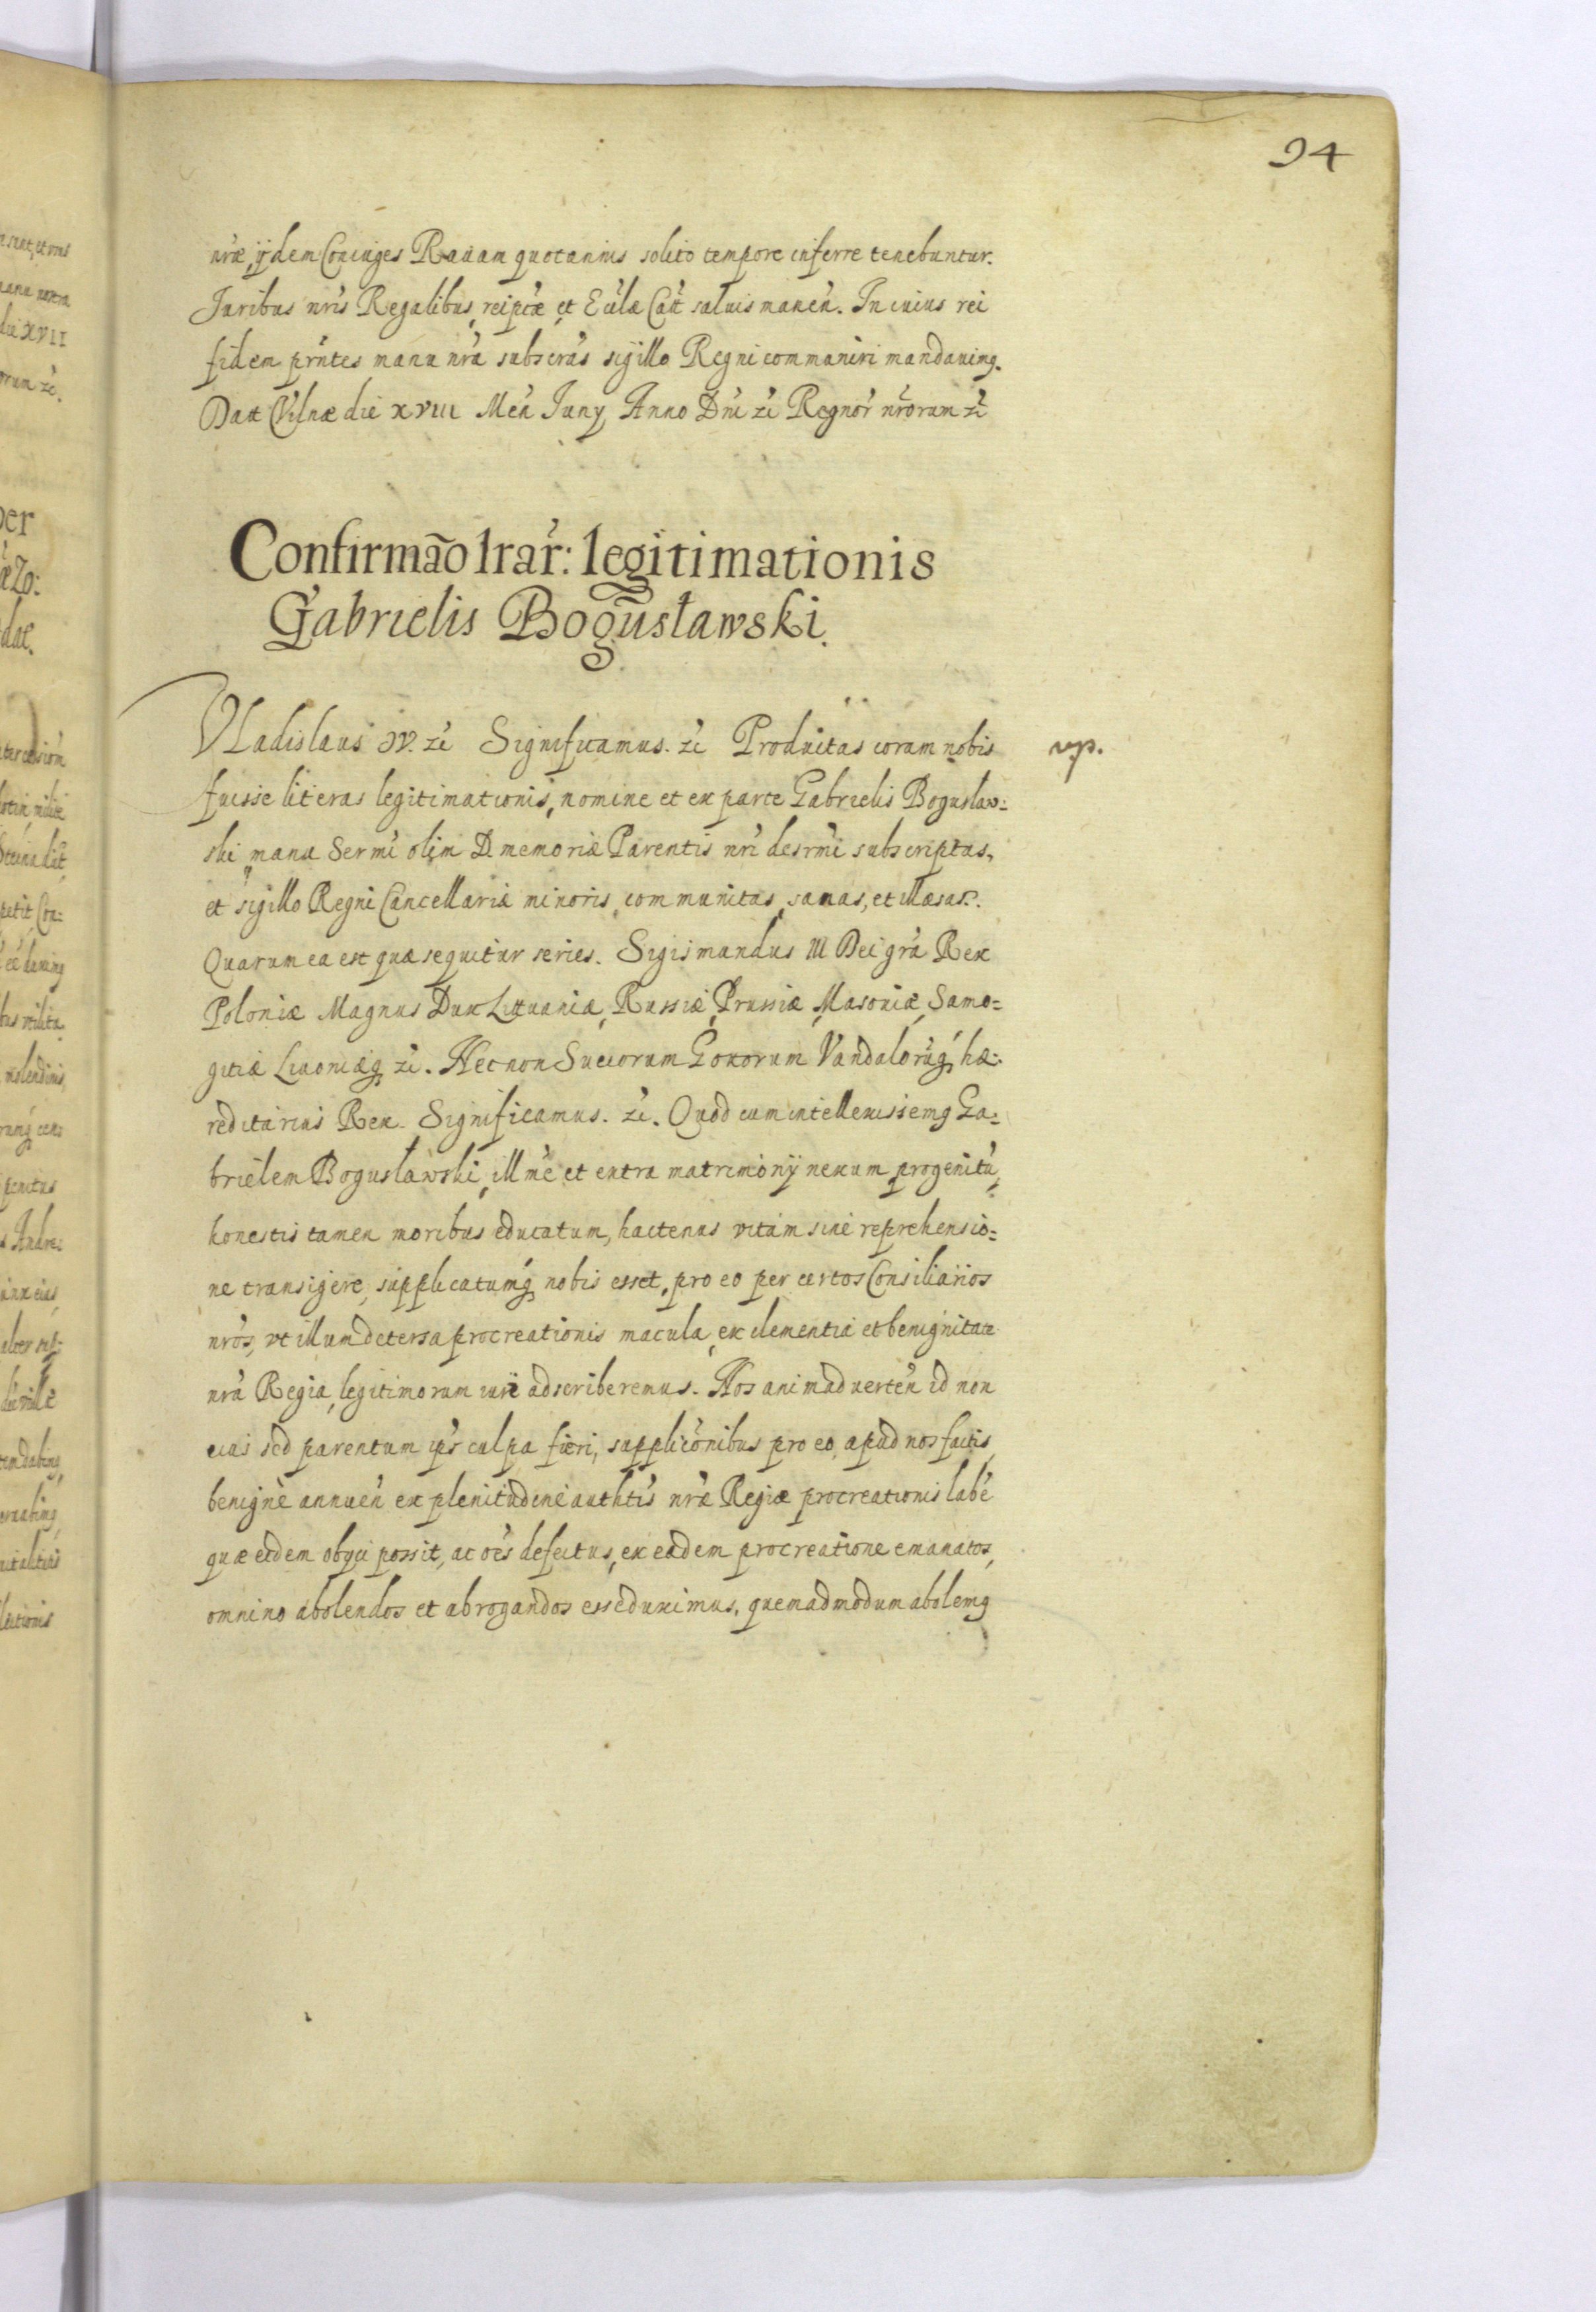 94
nræ, ijdem Coniuges Rauam quotannis solito tempore inferre tenebuntur.
Juribus nris Regalibus, reiptæ, et Ecclæ Catt saluis manen. In cuius rei
fidem prntes manu nra subscras sigillo Regni communiri mandauimq.
Datt Vilnæ die XVIII Men Iuny Anno Dni zc Regnor nrorum zc
Confirmão lrar: legitimationis
Gabrielis Bogusławski.
VLadislaus IV. zc Significamus. zc Productas coram nobis
vp.
fuisse literas legitimationis, nomine et ex parte Gabrielis Boguslaw=
ski, manu Sermi olim D. memoriæ Parentis nri desrmi subscriptas,
et sigillo Regni Cancellariæ minoris, communitas, sanas, et illæsas.
Quarum ea est quæ sequitur series. Sigismundus III Dei gra Rex
Poloniæ Magnus Dux Littuaniæ, Russiæ, Prussiæ, Masouiæ, Samo=
gitiæ Liuoniæq zc. Necnon Suecorum Gottorum Vandaloruq hæ=
reditarius Rex. Significamus. zc. Quod cum intellexissemq Ga=
brielem Bogusławski, illme et extra matrimonij nexum progenitu,
honestis tamen moribus educatum, hactenus vitam sine reprehensio=
ne transigere, supplicatumq nobis esset, pro eo per certos Consiliarios
nros, vt illum detersa procreationis macula, ex clementia et benignitate
nra Regia, legitimorum iuri adscriberemus. Nos animaduerten id non
eius sed parentum ips culpa fieri, supplicónibus pro eo, apud nos factis,
benignè annuen ex plenitudine authtis nræ Regiæ procreationis labé
quæ eidem obijci possit, ac oes defectus, ex eadem procreatione emanatos,
omnino abolendos et abrogandos esse duximus, quemadmodum abolemq